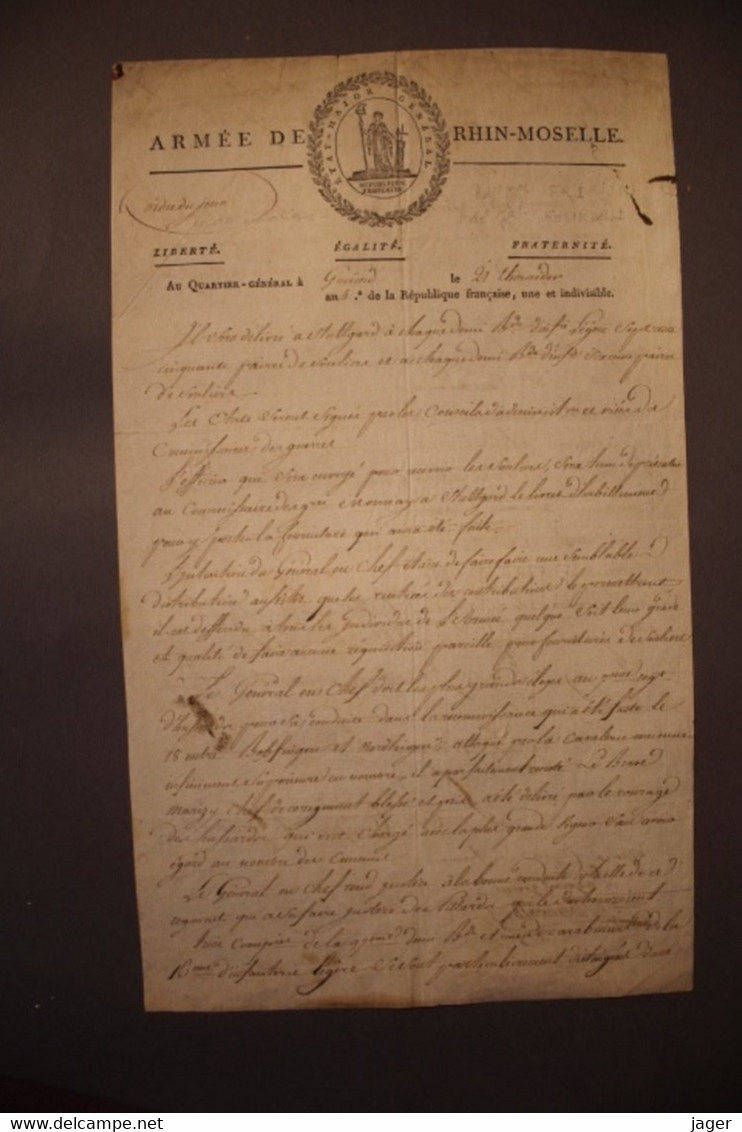 ARMÉE DE RHIN-MOSELLE.
ÉTAT-MAJOR GÉNÉRAL
RÉPUBLIQUE
FRANÇAISE
ordre du jour
LIBERTÉ. ÉGALITÉ. FRATERNITÉ.
AU QUARTIER-GÉNÉRAL à Gmünd le 21 thermidor
an 4.e de la République française, une et indivisible.
Il sera délivré a Stuttgard à chaque demi Bde d'infie Ligne Sept cent
cinquante paires de Souliers et a chaque demi Bde d'infie paires
de Souliers
Les Etats Seront Signés par les Conseils d'administron et visés des
Commissaires des guerres
L'officier qui Sera envoyé pour recevoir les Souliers, Sera tenu de présenter
au Commissaire des gres Monnay a Stuttgard le livret d'habillement
pour y porter la fourniture qui aura été faite.
L'intention du Général en Chef étant de faire faire une Semblable
distribution aussitôt que les rentrées des contributions le permettront
il est deffendu à tous les Individus de l'Armée quelque Soit leur grade
et qualité de faire aucune réquisition pareille pour fournitures de Souliers
Le Général en Chef doit les plus grands eloges au regt
d'hussards pour Sa conduite dans la reconnoissance qui a été faite le
18 entre Bopfingen et Nordlingen; attaqué par la Cavalerie ennemie
infiniment Supérieure en nombre, il a parfaitement resisté. Le Brave
Marigy Chef de ce régiment blessé et pris a été délivré par le courage
des hussards qui ont Chargé avec la plus grande vigueur Sans avoir
égard au nombre des Ennemis
Le Général en Chef rend justice à la bonne conduite de ce
régiment qui a Su faire justice des Pillards qui le deshonoroient
trois Compies de la demi Bde et une de carabiniers de la
16eme d'infanterie légère Se Sont particulierement distingués dans